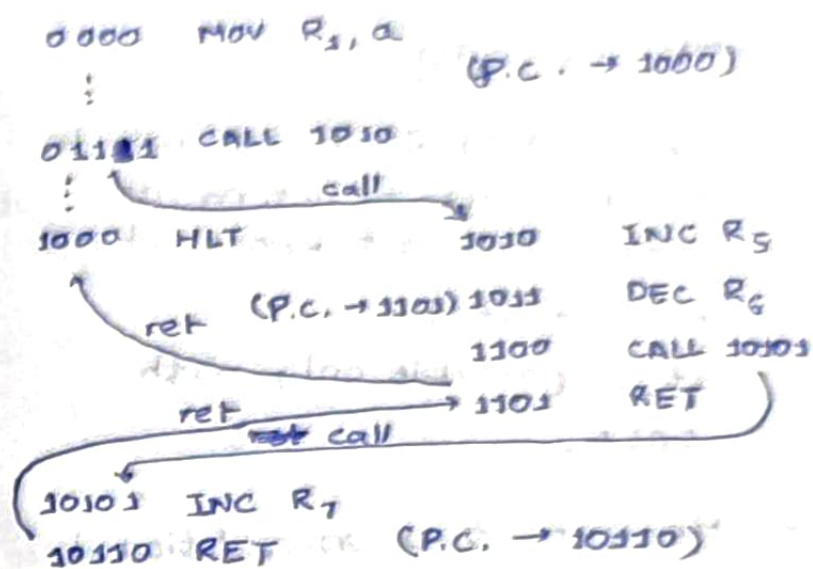 0000 MOV R1, a
(P.C. → 1000)
⋮
01111 CALL 1010
⋮ call
1000 HLT 1010 INC R5
ret (P.C. → 1101) 1011 DEC R6
1100 CALL 10101
ret 1101 RET
call
10101 INC R7
10110 RET (P.C. → 10110)